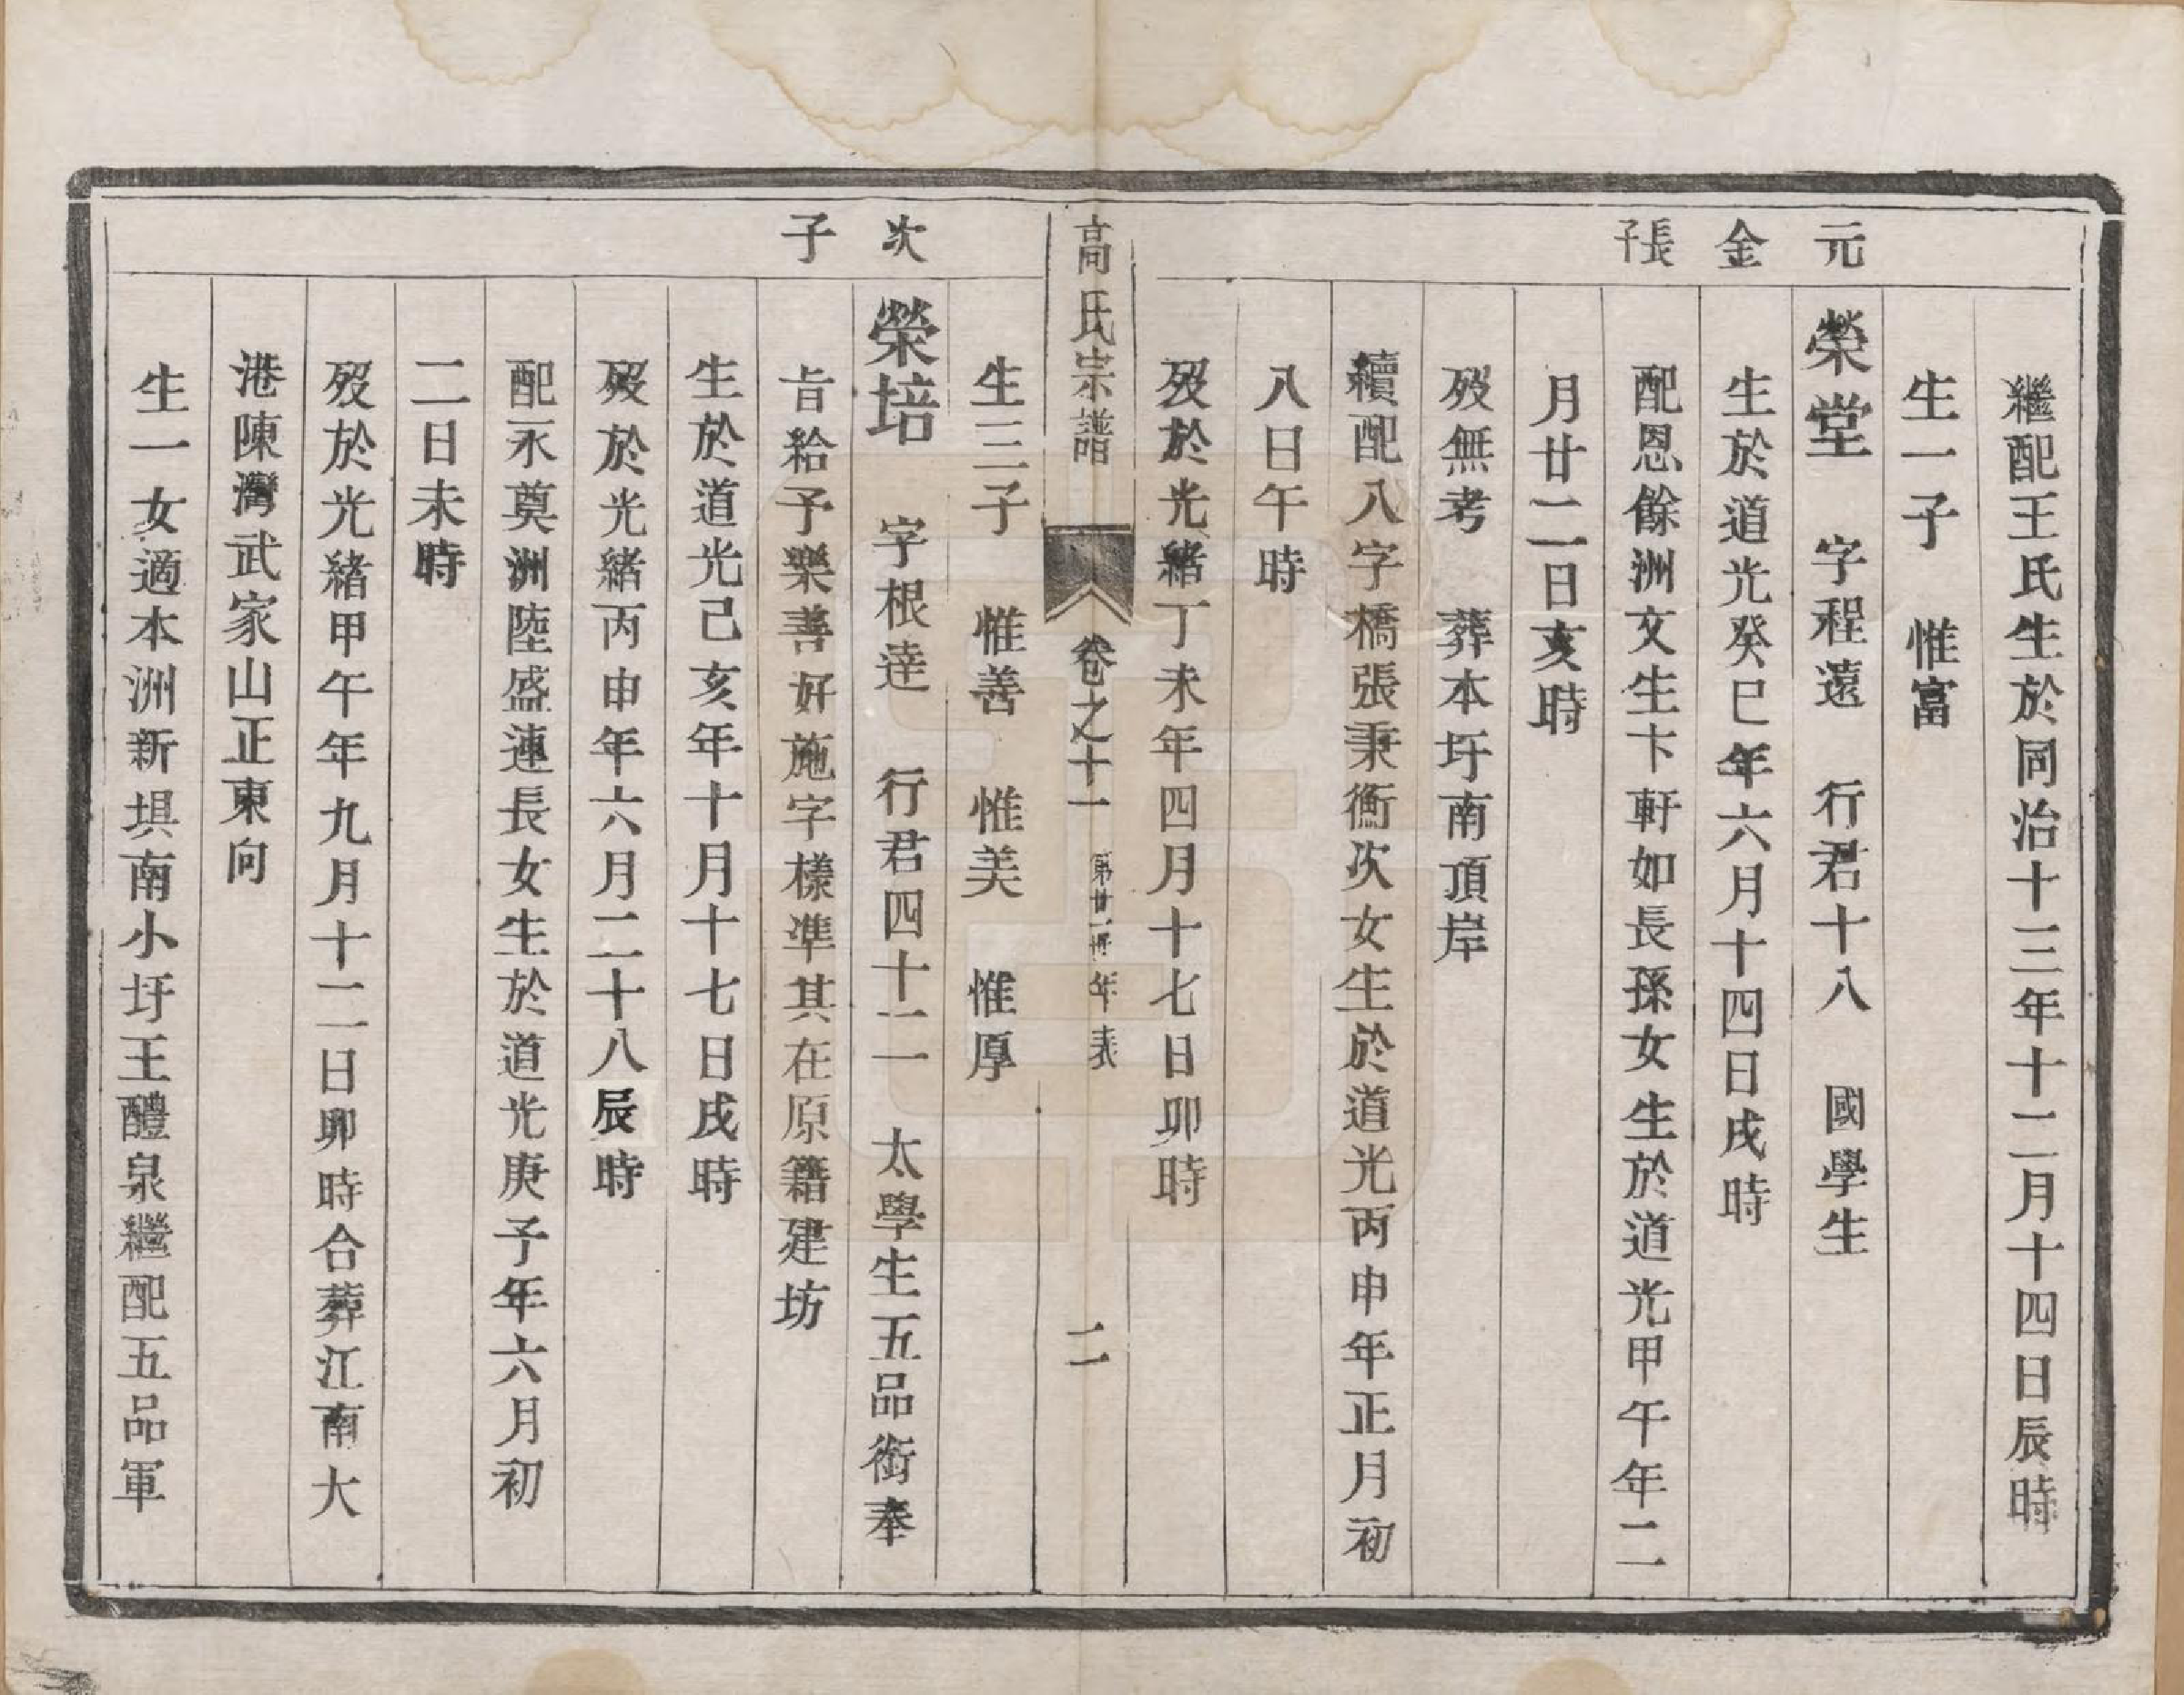 繼配王氏生於同治十三年十二月十四日辰時
生一子　惟富
元金張長子
榮堂　字程遠　行君十八　國學生
生於道光癸巳年六月十四日戌時
配恩餘洲文生卞軒如長孫女生於道光甲午年二
月廿二日亥時
歿無考　葬本圩南頂岸
續配八字橋張秉衡次女生於道光丙申年正月初
八日午時
歿於光緒丁未年四月十七日卯時
高氏宗譜　卷之十一　第廿一世年表　二
生三子　惟善　惟美　惟厚
次子
榮培　字根達　行君四十二　太學生五品銜奉
旨給予樂善好施字樣準其在原籍建坊
生於道光己亥年十月十七日戌時
歿於光緒丙申年六月二十八辰時
配永奠洲陸盛連長女生於道光庚子年六月初
二日未時
歿於光緒甲午年九月十二日卯時合葬江南大
港陳灣武家山正東向
生一女適本洲新埧南小圩王醴泉繼配五品軍